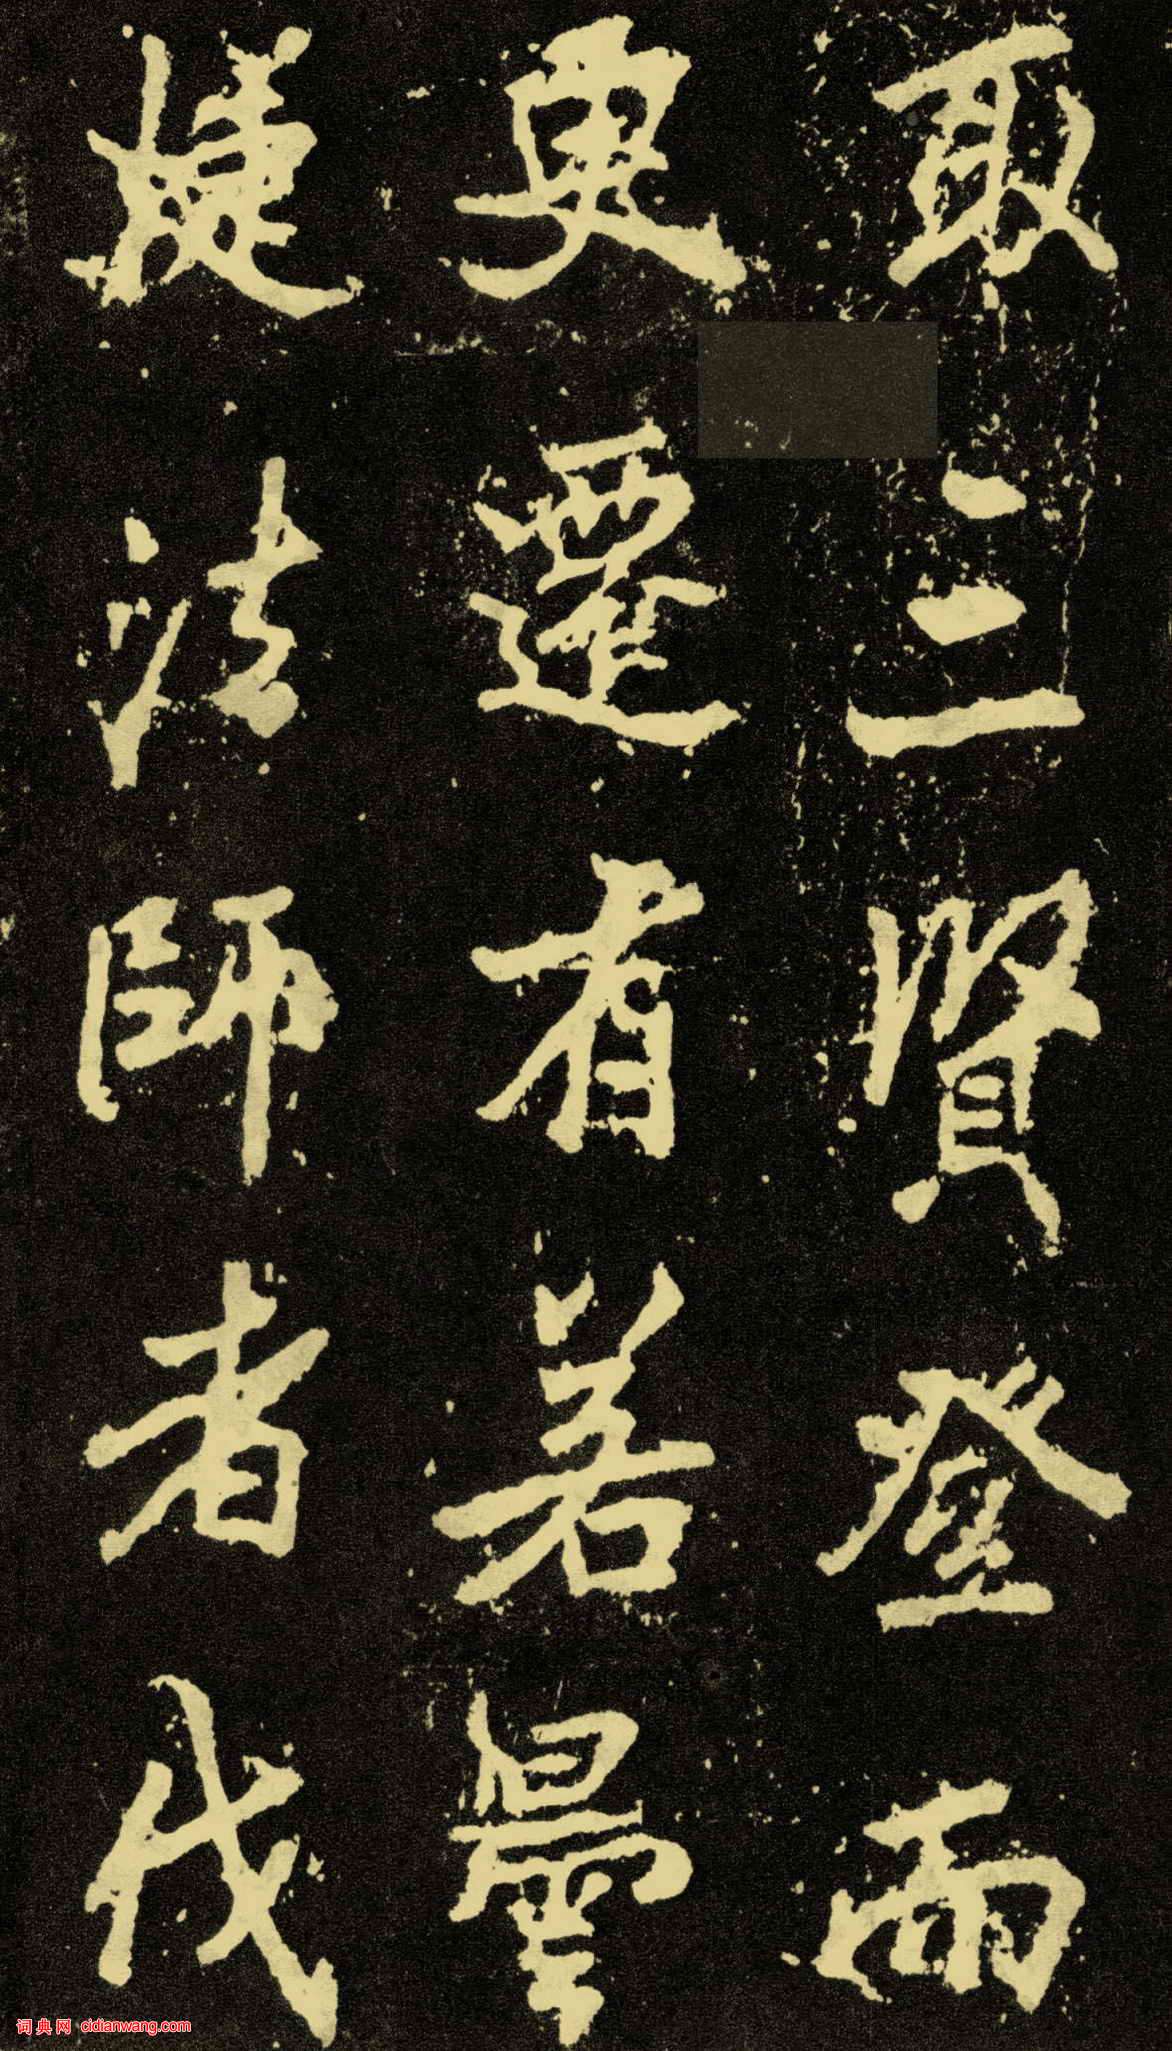 取三賢登而
更遷有若曇
捷法師者伐
词典网 cidianwang.com